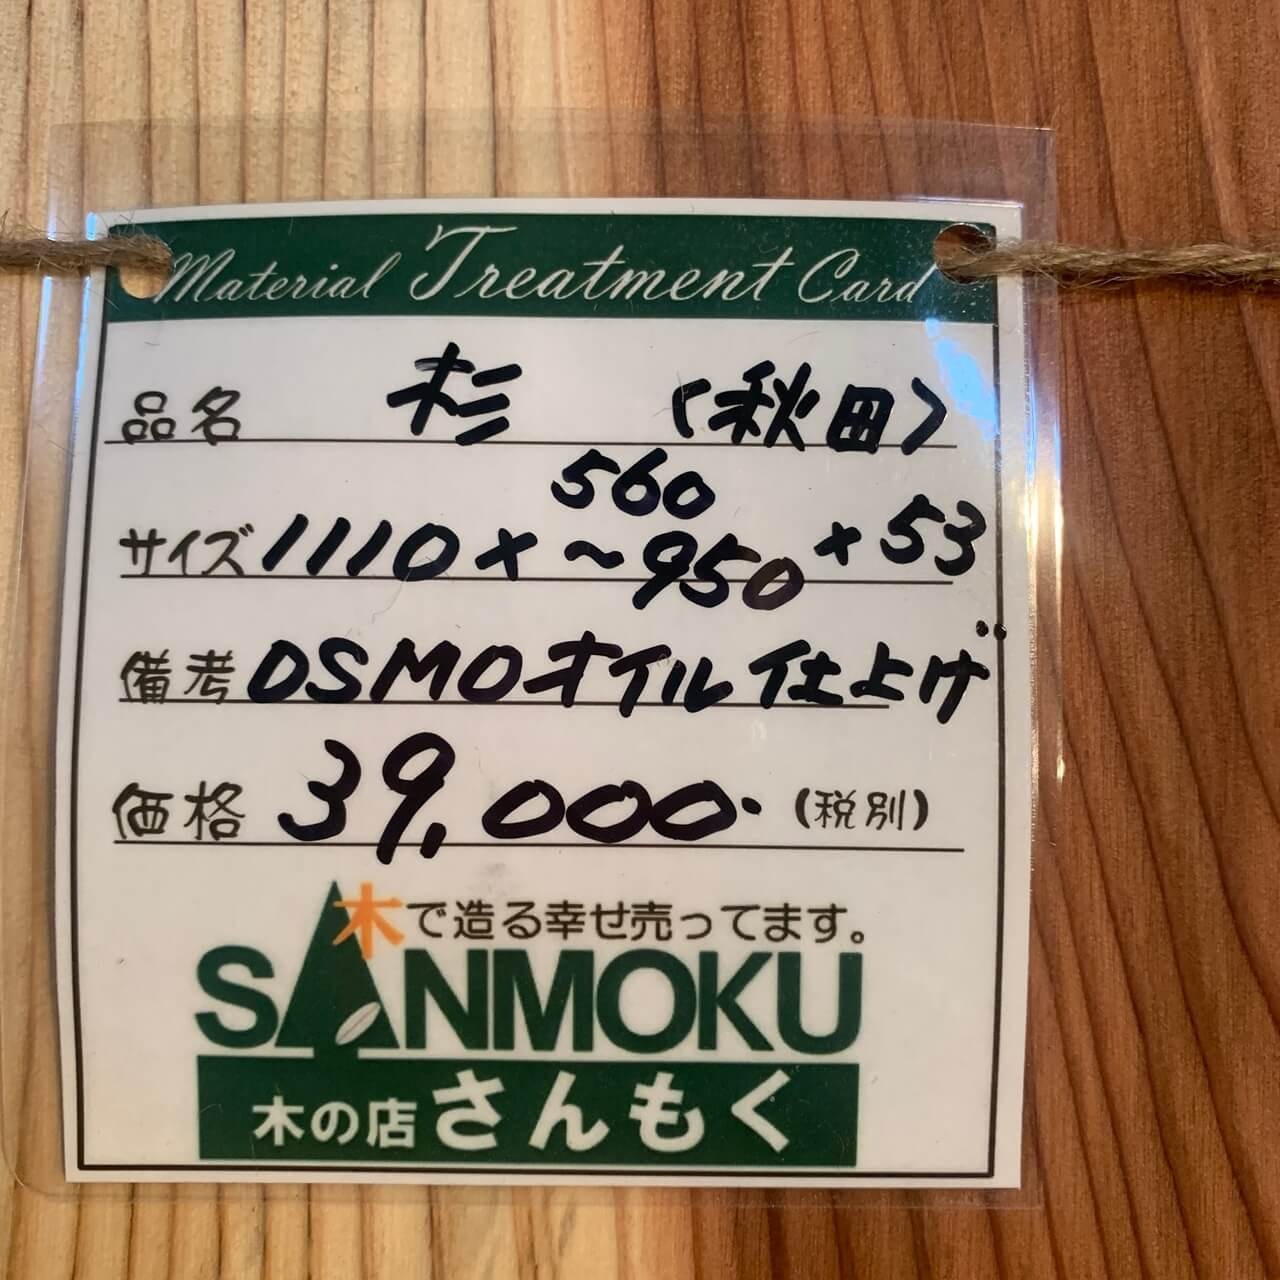 Material Treatment Card
品名 杉 (秋田)
サイズ 1110 × 560~950 × 53
備考 OSMOオイル仕上げ
価格 39,000. (税別)
木で造る幸せ売ってます。
SANMOKU
木の店 さんもく